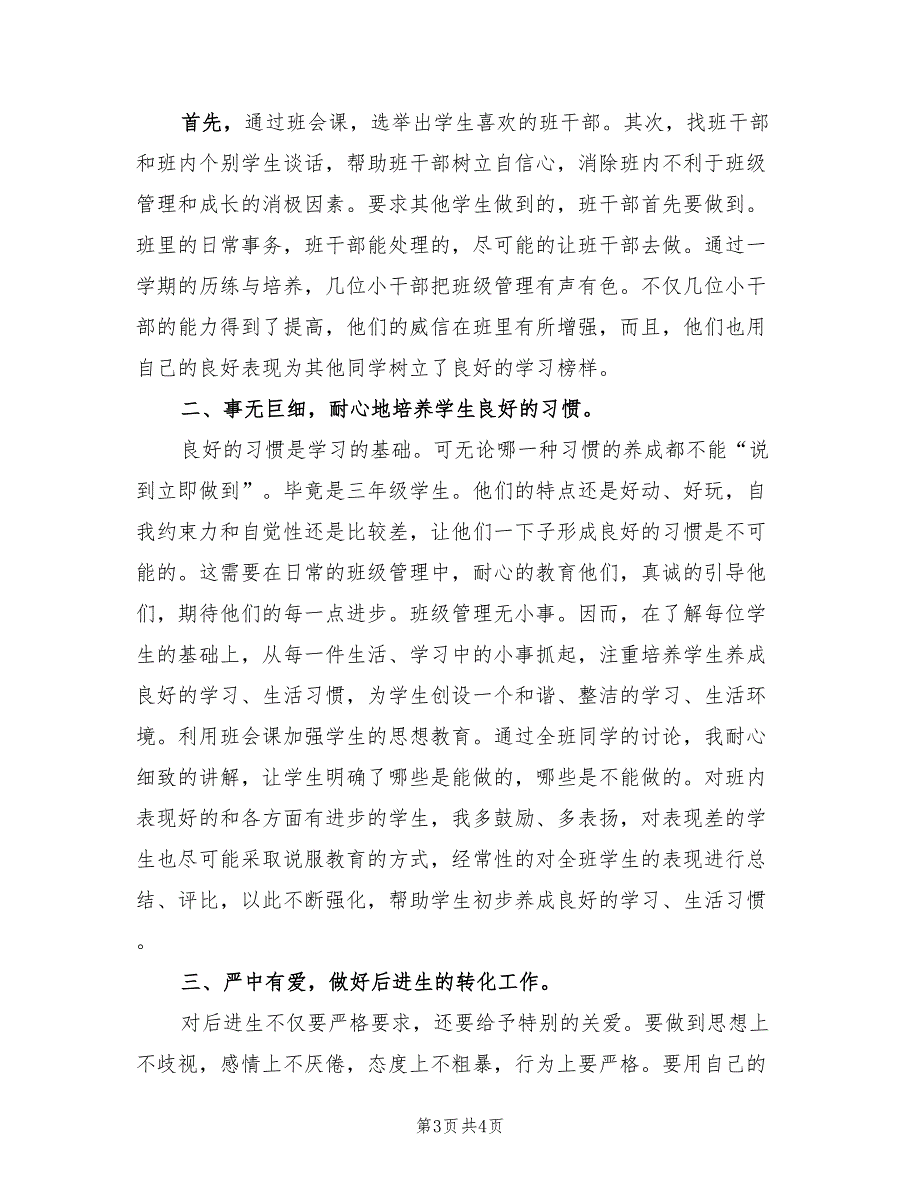 首先，通过班会课，选举出学生喜欢的班干部。其次，找班干部
和班内个别学生谈话，帮助班干部树立自信心，消除班内不利于班级
管理和成长的消极因素。要求其他学生做到的，班干部首先要做到。
班里的日常事务，班干部能处理的，尽可能的让班干部去做。通过一
学期的历练与培养，几位小干部把班级管理有声有色。不仅几位小干
部的能力得到了提高，他们的威信在班里有所增强，而且，他们也用
自己的良好表现为其他同学树立了良好的学习榜样。
二、事无巨细，耐心地培养学生良好的习惯。
良好的习惯是学习的基础。可无论哪一种习惯的养成都不能“说
到立即做到”。毕竟是三年级学生。他们的特点还是好动、好玩，自
我约束力和自觉性还是比较差，让他们一下子形成良好的习惯是不可
能的。这需要在日常的班级管理中，耐心的教育他们，真诚的引导他
们，期待他们的每一点进步。班级管理无小事。因而，在了解每位学
生的基础上，从每一件生活、学习中的小事抓起，注重培养学生养成
良好的学习、生活习惯，为学生创设一个和谐、整洁的学习、生活环
境。利用班会课加强学生的思想教育。通过全班同学的讨论，我耐心
细致的讲解，让学生明确了哪些是能做的，哪些是不能做的。对班内
表现好的和各方面有进步的学生，我多鼓励、多表扬，对表现差的学
生也尽可能采取说服教育的方式，经常性的对全班学生的表现进行总
结、评比，以此不断强化，帮助学生初步养成良好的学习、生活习惯
。
三、严中有爱，做好后进生的转化工作。
对后进生不仅要严格要求，还要给予特别的关爱。要做到思想上
不歧视，感情上不厌倦，态度上不粗暴，行为上要严格。要用自己的
第3页共4页